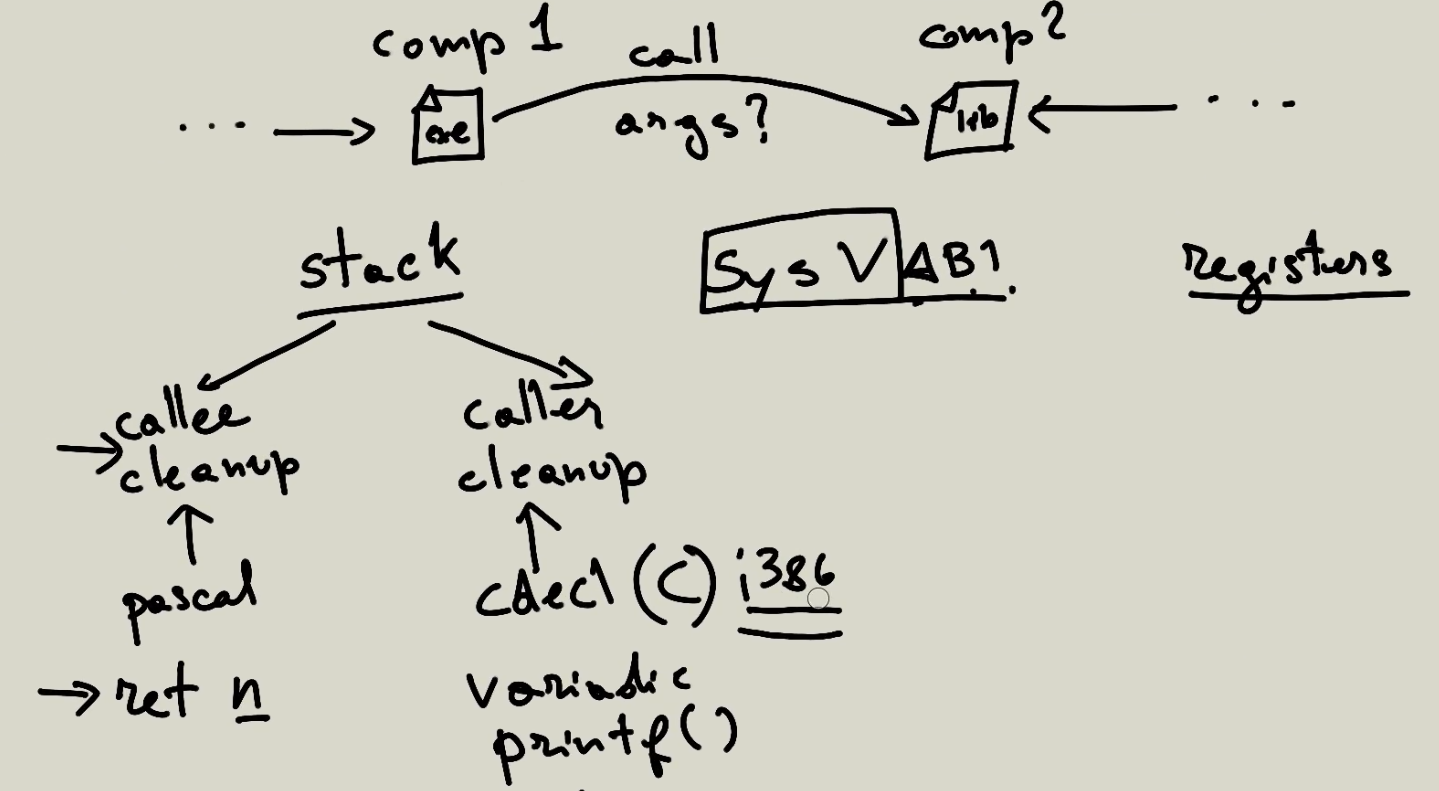 comp 1
call
comp 2
...
exe
args?
lib
...
stack
Sys V ABI.
registers
callee
cleanup
caller
cleanup
pascal
cdecl (C) i386
ret n
variadic
printf()